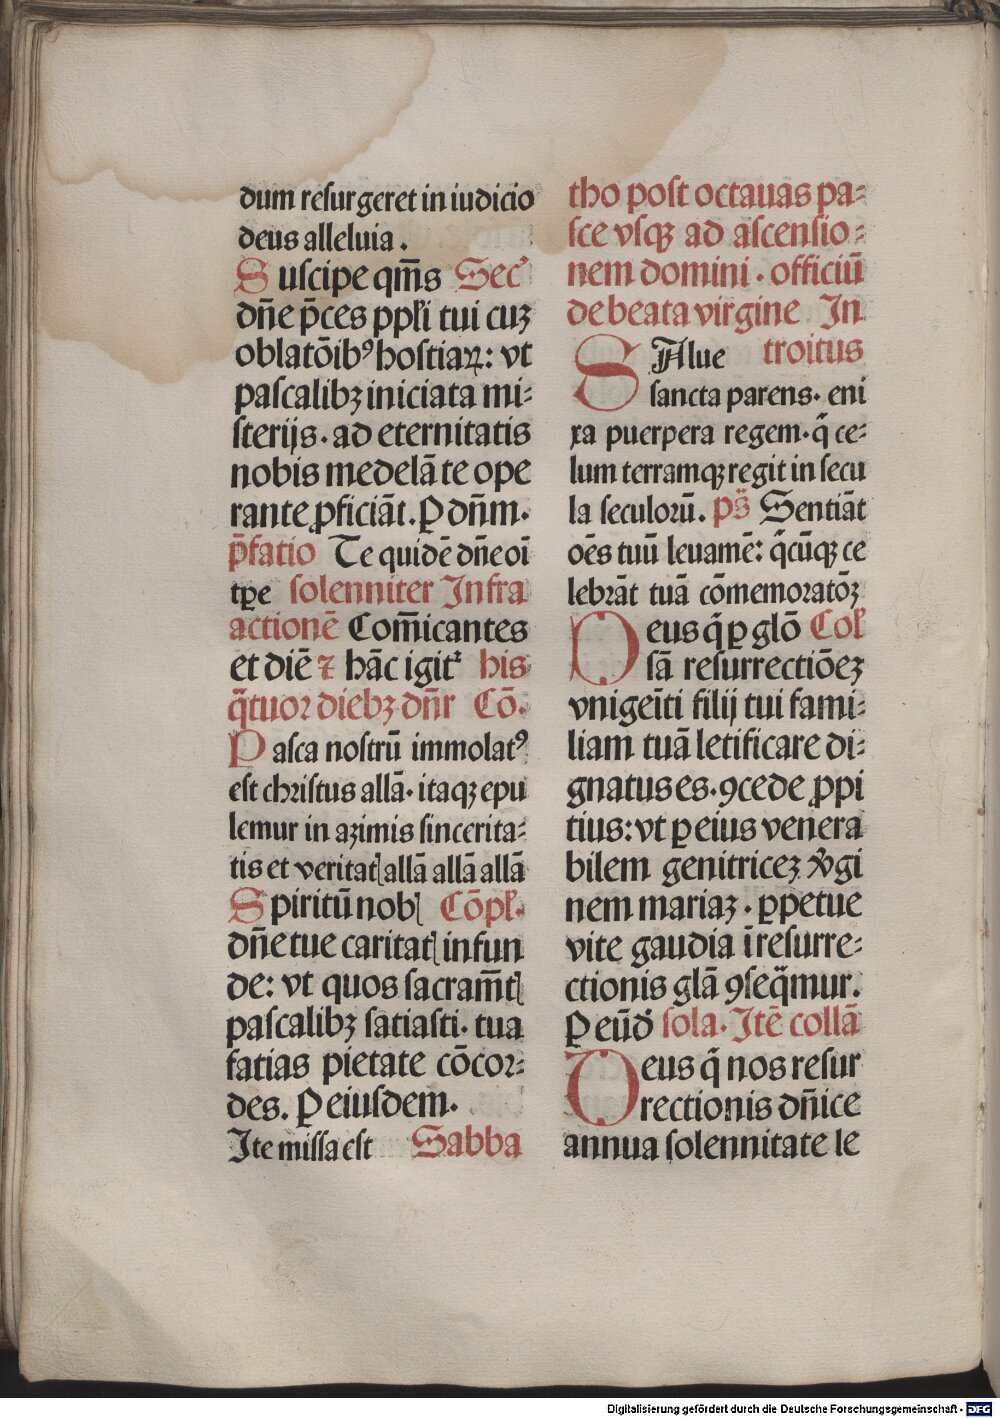 dum resurgeret in iudicio
deus alleluia.
Suscipe qm̄s Sec̄
dn̄e p̄ces pp̄li tui cuz
oblatōibꝰ hostiaꝝ: vt
pascalibꝫ iniciata mi-
sterijs. ad eternitatis
nobis medelā te ope
rante ꝓficiāt. Ꝑ dn̄m.
p̄fatio Te quidē dn̄e oī
tꝑe solenniter Infra
actionē Com̄icantes
et diē ⁊ hāc igit᷑ his
q̄tuor diebꝫ dn̄r Cō.
Pasca nostrū immolatꝰ
est christus allā. itaqꝫ epu
lemur in azimis sincerita-
tis et veritatꝭ allā allā allā
Spiritū nobꝭ Cōpl̄.
dn̄e tue caritatꝭ infun
de: vt quos sacram̄tꝭ
pascalibꝫ satiasti. tua
fatias pietate cōcor-
des. Ꝑ eiusdem.
Ite missa est Sabba
tho post octauas pa-
sce vsqꝫ ad ascensio-
nem domini. officiū
de beata virgine In
SAlue troitus
sancta parens. eni
xa puerpera regem. q̄ ce-
lum terramqꝫ regit in secu
la seculorū. ps̄ Sentiāt
oēs tuū leuamē: q̄cūqꝫ ce
lebrāt tuā cōmemoratōꝫ
Deus q̄ ꝑ glō Col̄
sā resurrectiōeꝫ
vnigeīti filij tui fami-
liam tuā letificare di-
gnatus es. ꝯcede ꝓpi
tius: vt ꝑ eius venera
bilem genitriceꝫ v̾gi
nem mariaꝫ. ꝑpetue
vite gaudia ī resurre-
ctionis glā ꝯseq̄mur.
Ꝑ eūd̄ sola. Itē collā
Deus q̄ nos resur
rectionis dn̄ice
annua solennitate le
Digitalisierung gefördert durch die Deutsche Forschungsgemeinschaft - DFG